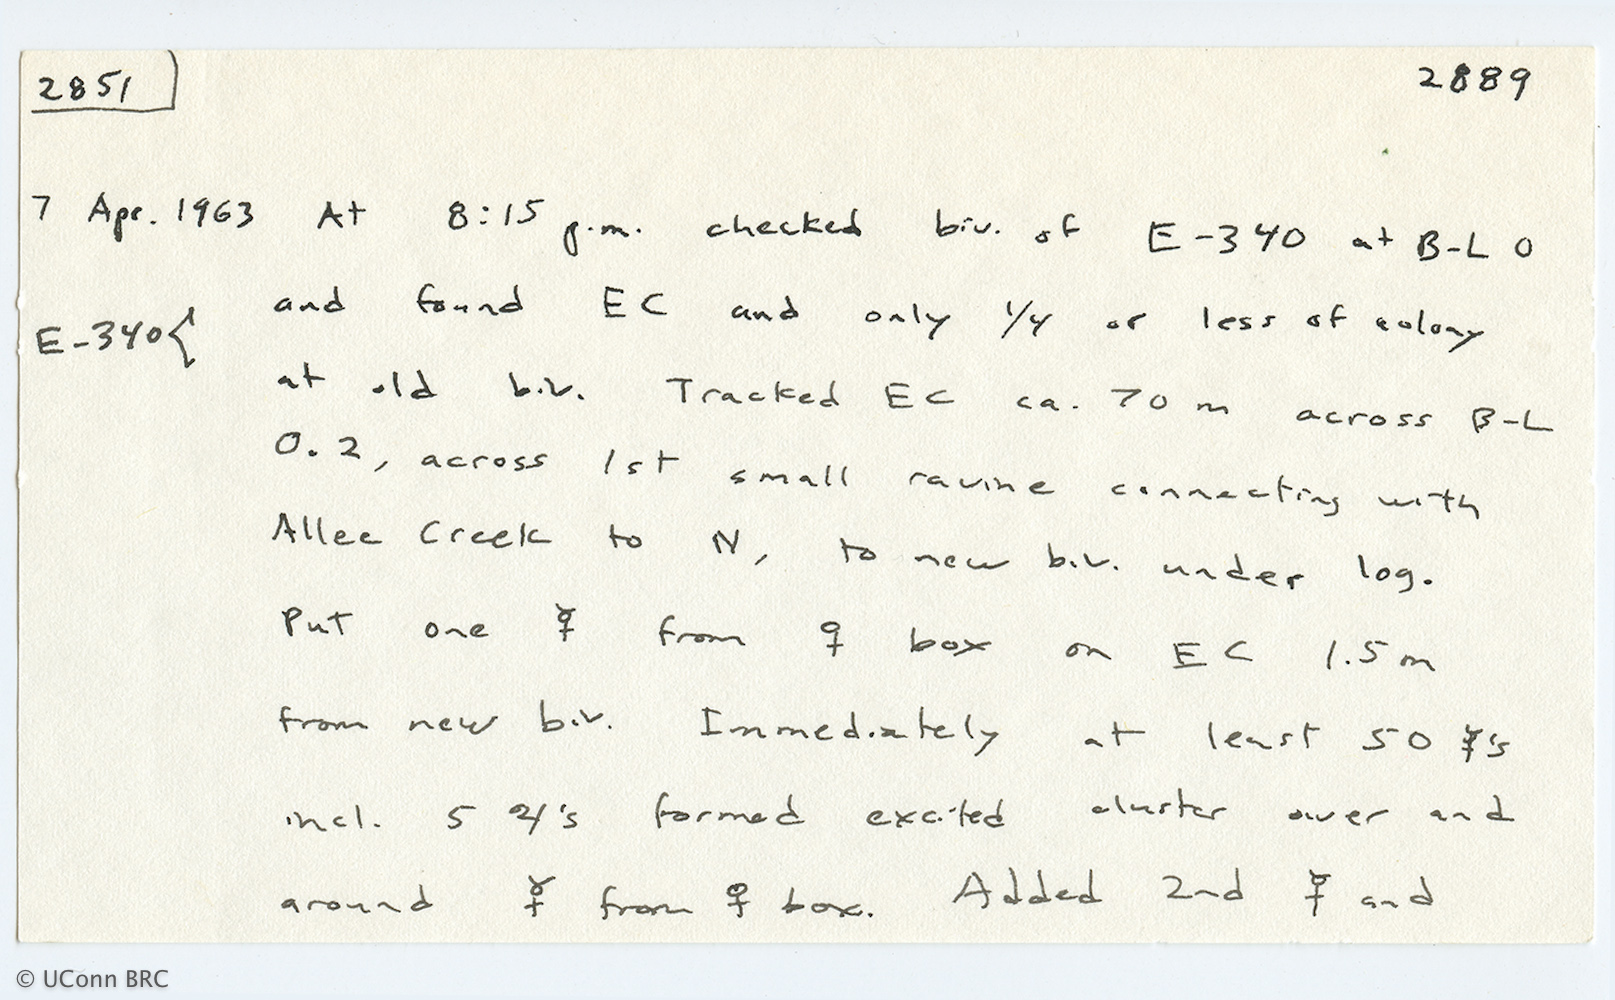 2851
2889
7 Apr. 1963 At 8:15 p.m. checked biv. of E-340 at B-L 0
E-340{
and found EC and only 1/4 or less of colony
at old biv. Tracked EC ca. 70 m across B-L
0.2, across 1st small ravine connecting with
Allee Creek to N, to new biv. under log.
Put one ☿ from ♀ box on EC 1.5 m
from new biv. Immediately at least 50 ☿'s
incl. 5 ♃'s formed excited cluster over and
around ☿ from ♀ box. Added 2nd ☿ and
© UConn BRC